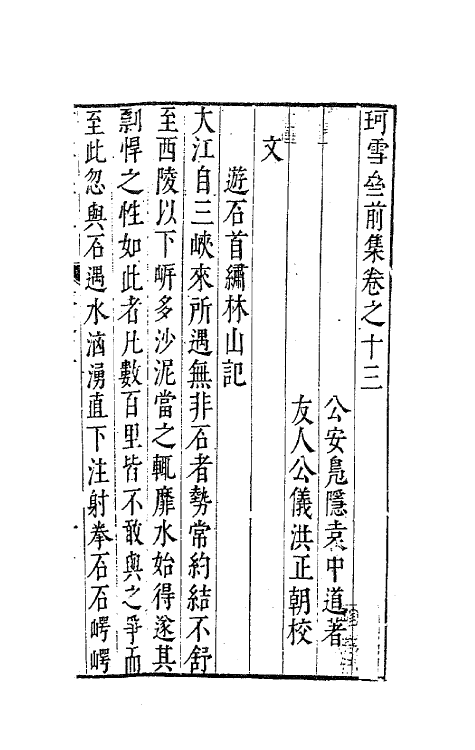 珂雪齋前集卷之十三
公安鳧隱袁中道著
友人公儀洪正朝校
文
遊石首繡林山記
大江自三峽來所遇無非石者勢常約結不舒
至西陵以下岍多沙泥當之輒靡水始得遂其
剽悍之性如此者凡數百里皆不敢與之爭而
至此忽與石遇水洶湧直下注射拳石石崿崿